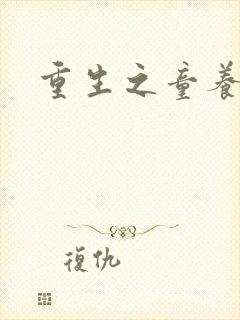 重生之童養
復仇